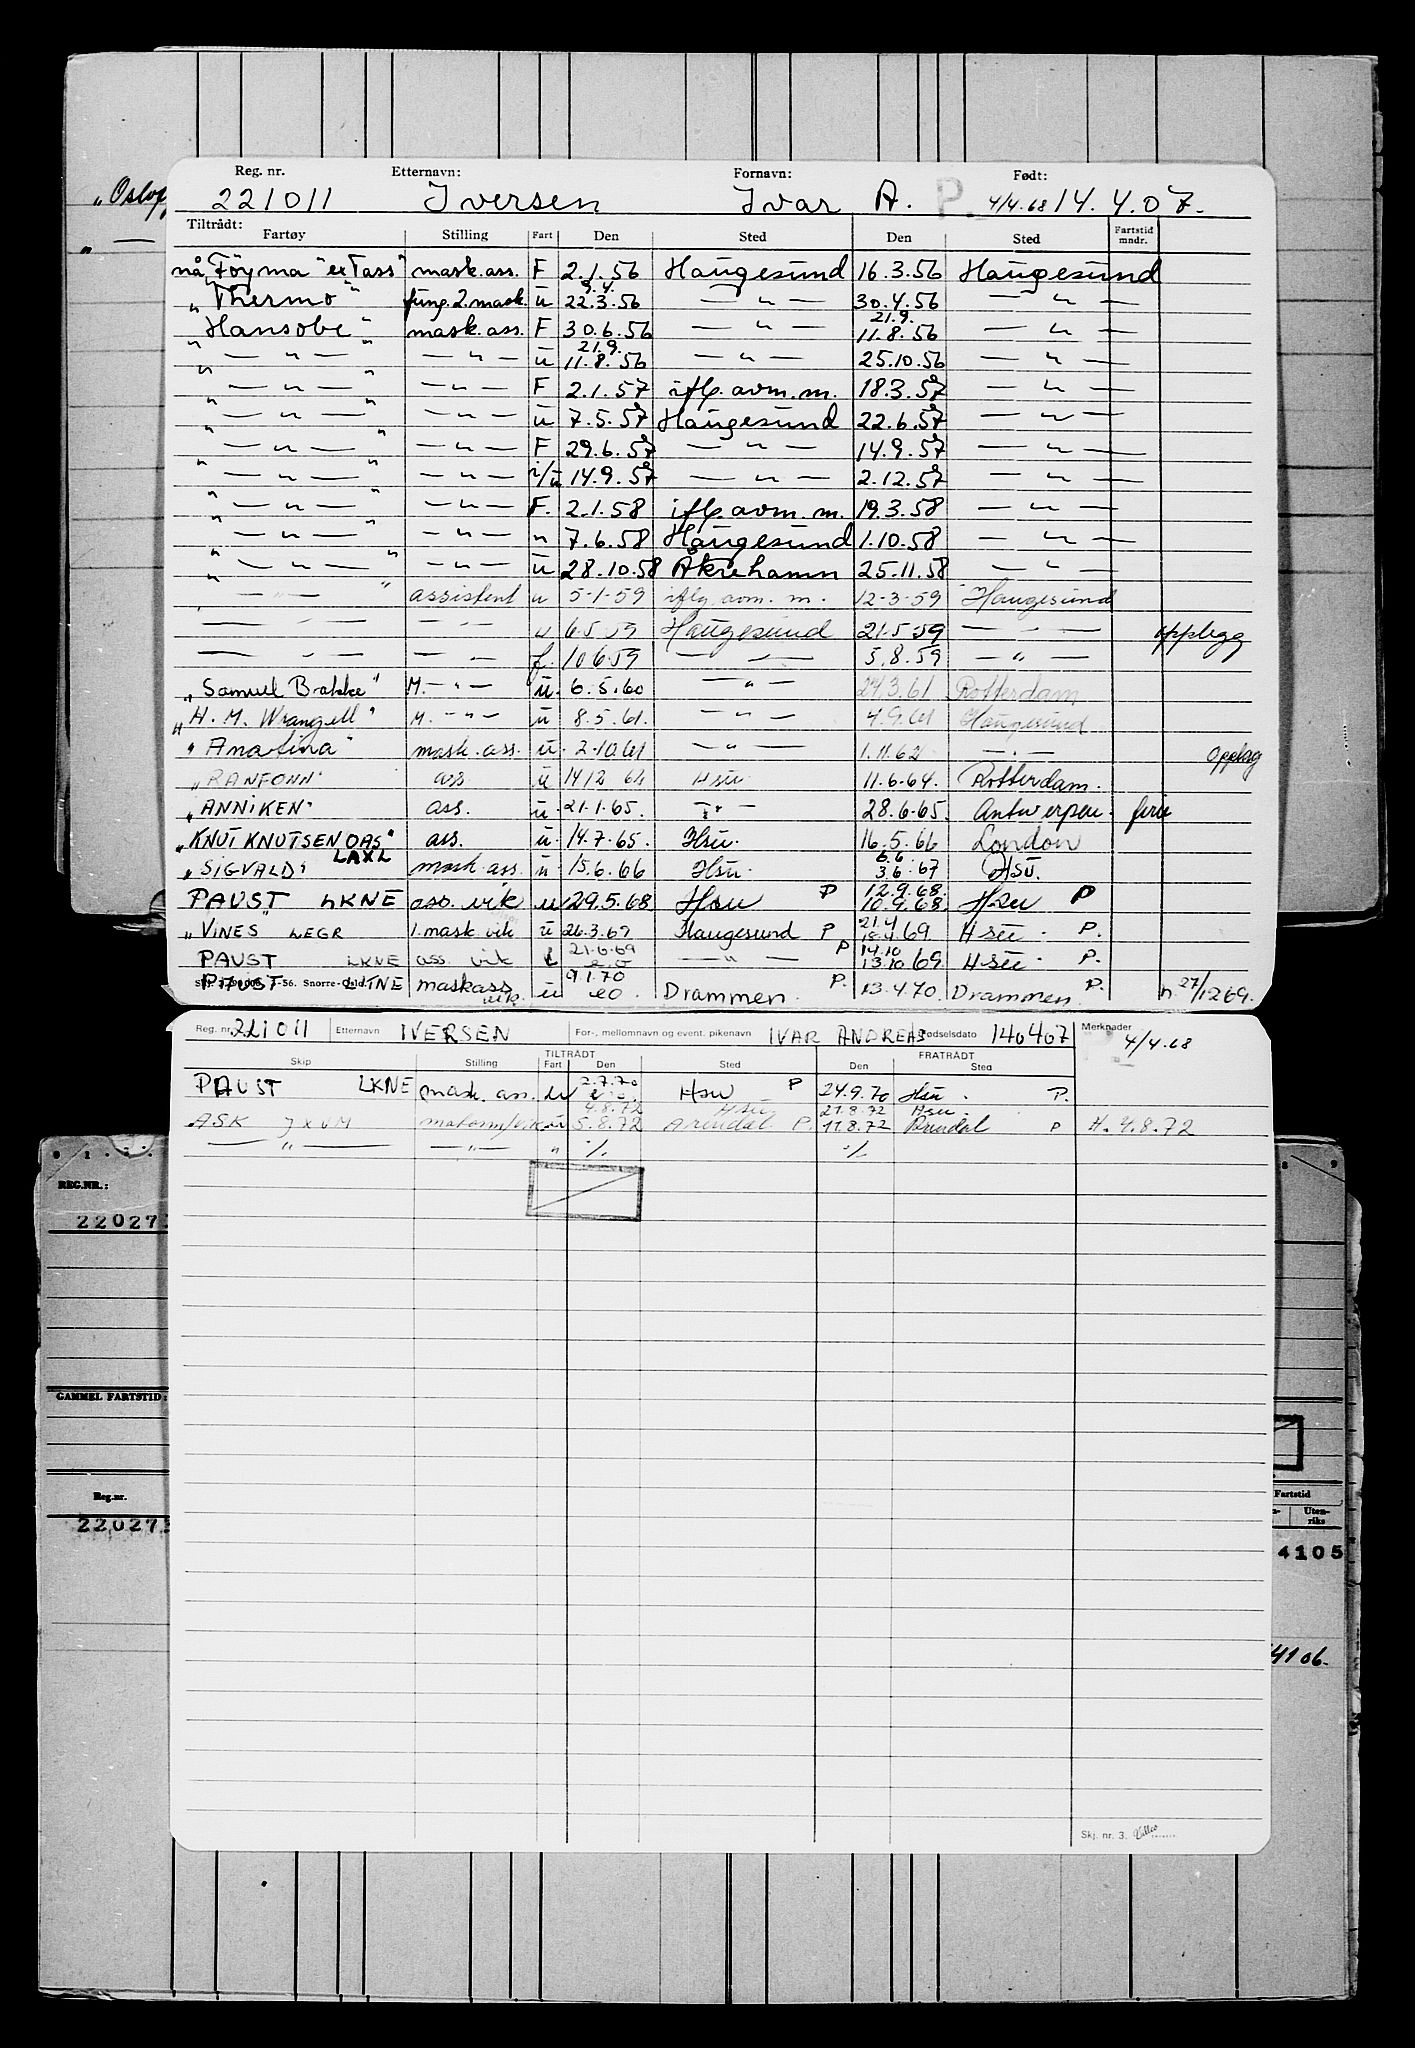 Reg. nr. Etternavn: Fornavn: Født:
221011 Iversen Ivar A. P. 4/4.68 14.4.07.
Tiltrådt: Fartstid mndr.
Fartøy Stilling Fart Den Sted Den Sted
nå "Føyma" ex Tass" mask.ass. F 2.1.56 Haugesund 16.3.56 Haugesund
"Thermo" fung.2.mask. u 9.4. 22.3.56 — " — 30.4.56 — " —
"Hansobe" mask.ass. F 30.6.56 — " — 21.9. 11.8.56 — " —
" — " — " — " — u 21.9. 11.8.56 — " — 25.10.56 — " —
" — " — " — " — F 2.1.57 iflg. avm. m. 18.3.57 — " —
" — " — " — " — u 7.5.57 Haugesund 22.6.57 — " —
" — " — " — " — F 29.6.57 — " — 14.9.57 — " —
" — " — " — " — i/u 14.9.57 — " — 2.12.57 — " —
" — " — " — " — F. 2.1.58 iflg. avm. m. 19.3.58 — " —
" — " — " — " — " 7.6.58 Haugesund 1.10.58 — " —
" — " — " — " — u 28.10.58 Åkrehamn 25.11.58 — " —
" — " — " assistent u 5-1-59 iflg. avm. m. 12-3-59 Haugesund
— " — — " — u 6.5.59 Haugesund 21.5.59 — " — opplegg
— " — — " — f. 10.6.59 — " — 5.8.59 — " —
"Samuel Bakke" M. — " — u. 6.5.60 — " — 24.3.61 Rotterdam
"H. M. Wrangell" M. — " — u 8.5.61. — " — 4.9.61 Haugesund
"Anatina" mask.ass. u. 2.10.61 — " — 1.11.62 — " — Opplag
"RANFONN" ass u 14 12 Hsu. 11.6-64. Rotterdam.
"ANNIKEN" ass. u. 21.1.65. — " — 28.6.65. Antwerpen. ferie
"KNUT KNUTSEN OAS" ass. u. 14.7.65. Hsu. 16.5.66 London
"SIGVALD" LAXL mask.ass. u 15.6.66 Hsu. 6.6. 3.6.67 Hsu.
PAUST LKNE ass. vik u 29.5.68 Hsu P 12.9.68. 10.9.68. Hsu P
"VINES" LEGR 1.mask. vik u 26.3.69 Haugesund P 21.4 69. Hsu. P.
PAUST LKNE ass. vik 21.6.69 — " — P 14.10 13.10 69. Hsu. P.
PAUST LKNE maskass vik. u 9.1.70 eo Drammen. P. 13.4.70. Drammen. P. h. 27/12 69.
Reg. nr. 221011 Etternavn IVERSEN For-, mellomnavn og event. pikenavn IVAR ANDREAS Fødselsdato 140407 Merknader
4/4.68
TILTRÅDT FRATRÅDT
Skip Stilling Fart Den Sted Den Sted
PAUST LKNE mask. ass. u 2.7.70 Hsu P 24.9.70 Hsu. P.
4.8.72 Hsu 21.8.72 Hsu.
ASK JXVM 5.8.72 Arendal P. 17.8.72 Arendal P H. 4.8.72
— " — — " — " ./. ./.
Skj. nr. 3.
"Oslof
REG.NR.:
22027
GAMMEL FARTSTID:
Reg.nr.
22027
8 9
Fartstid
Uten-riks
4105
4106.